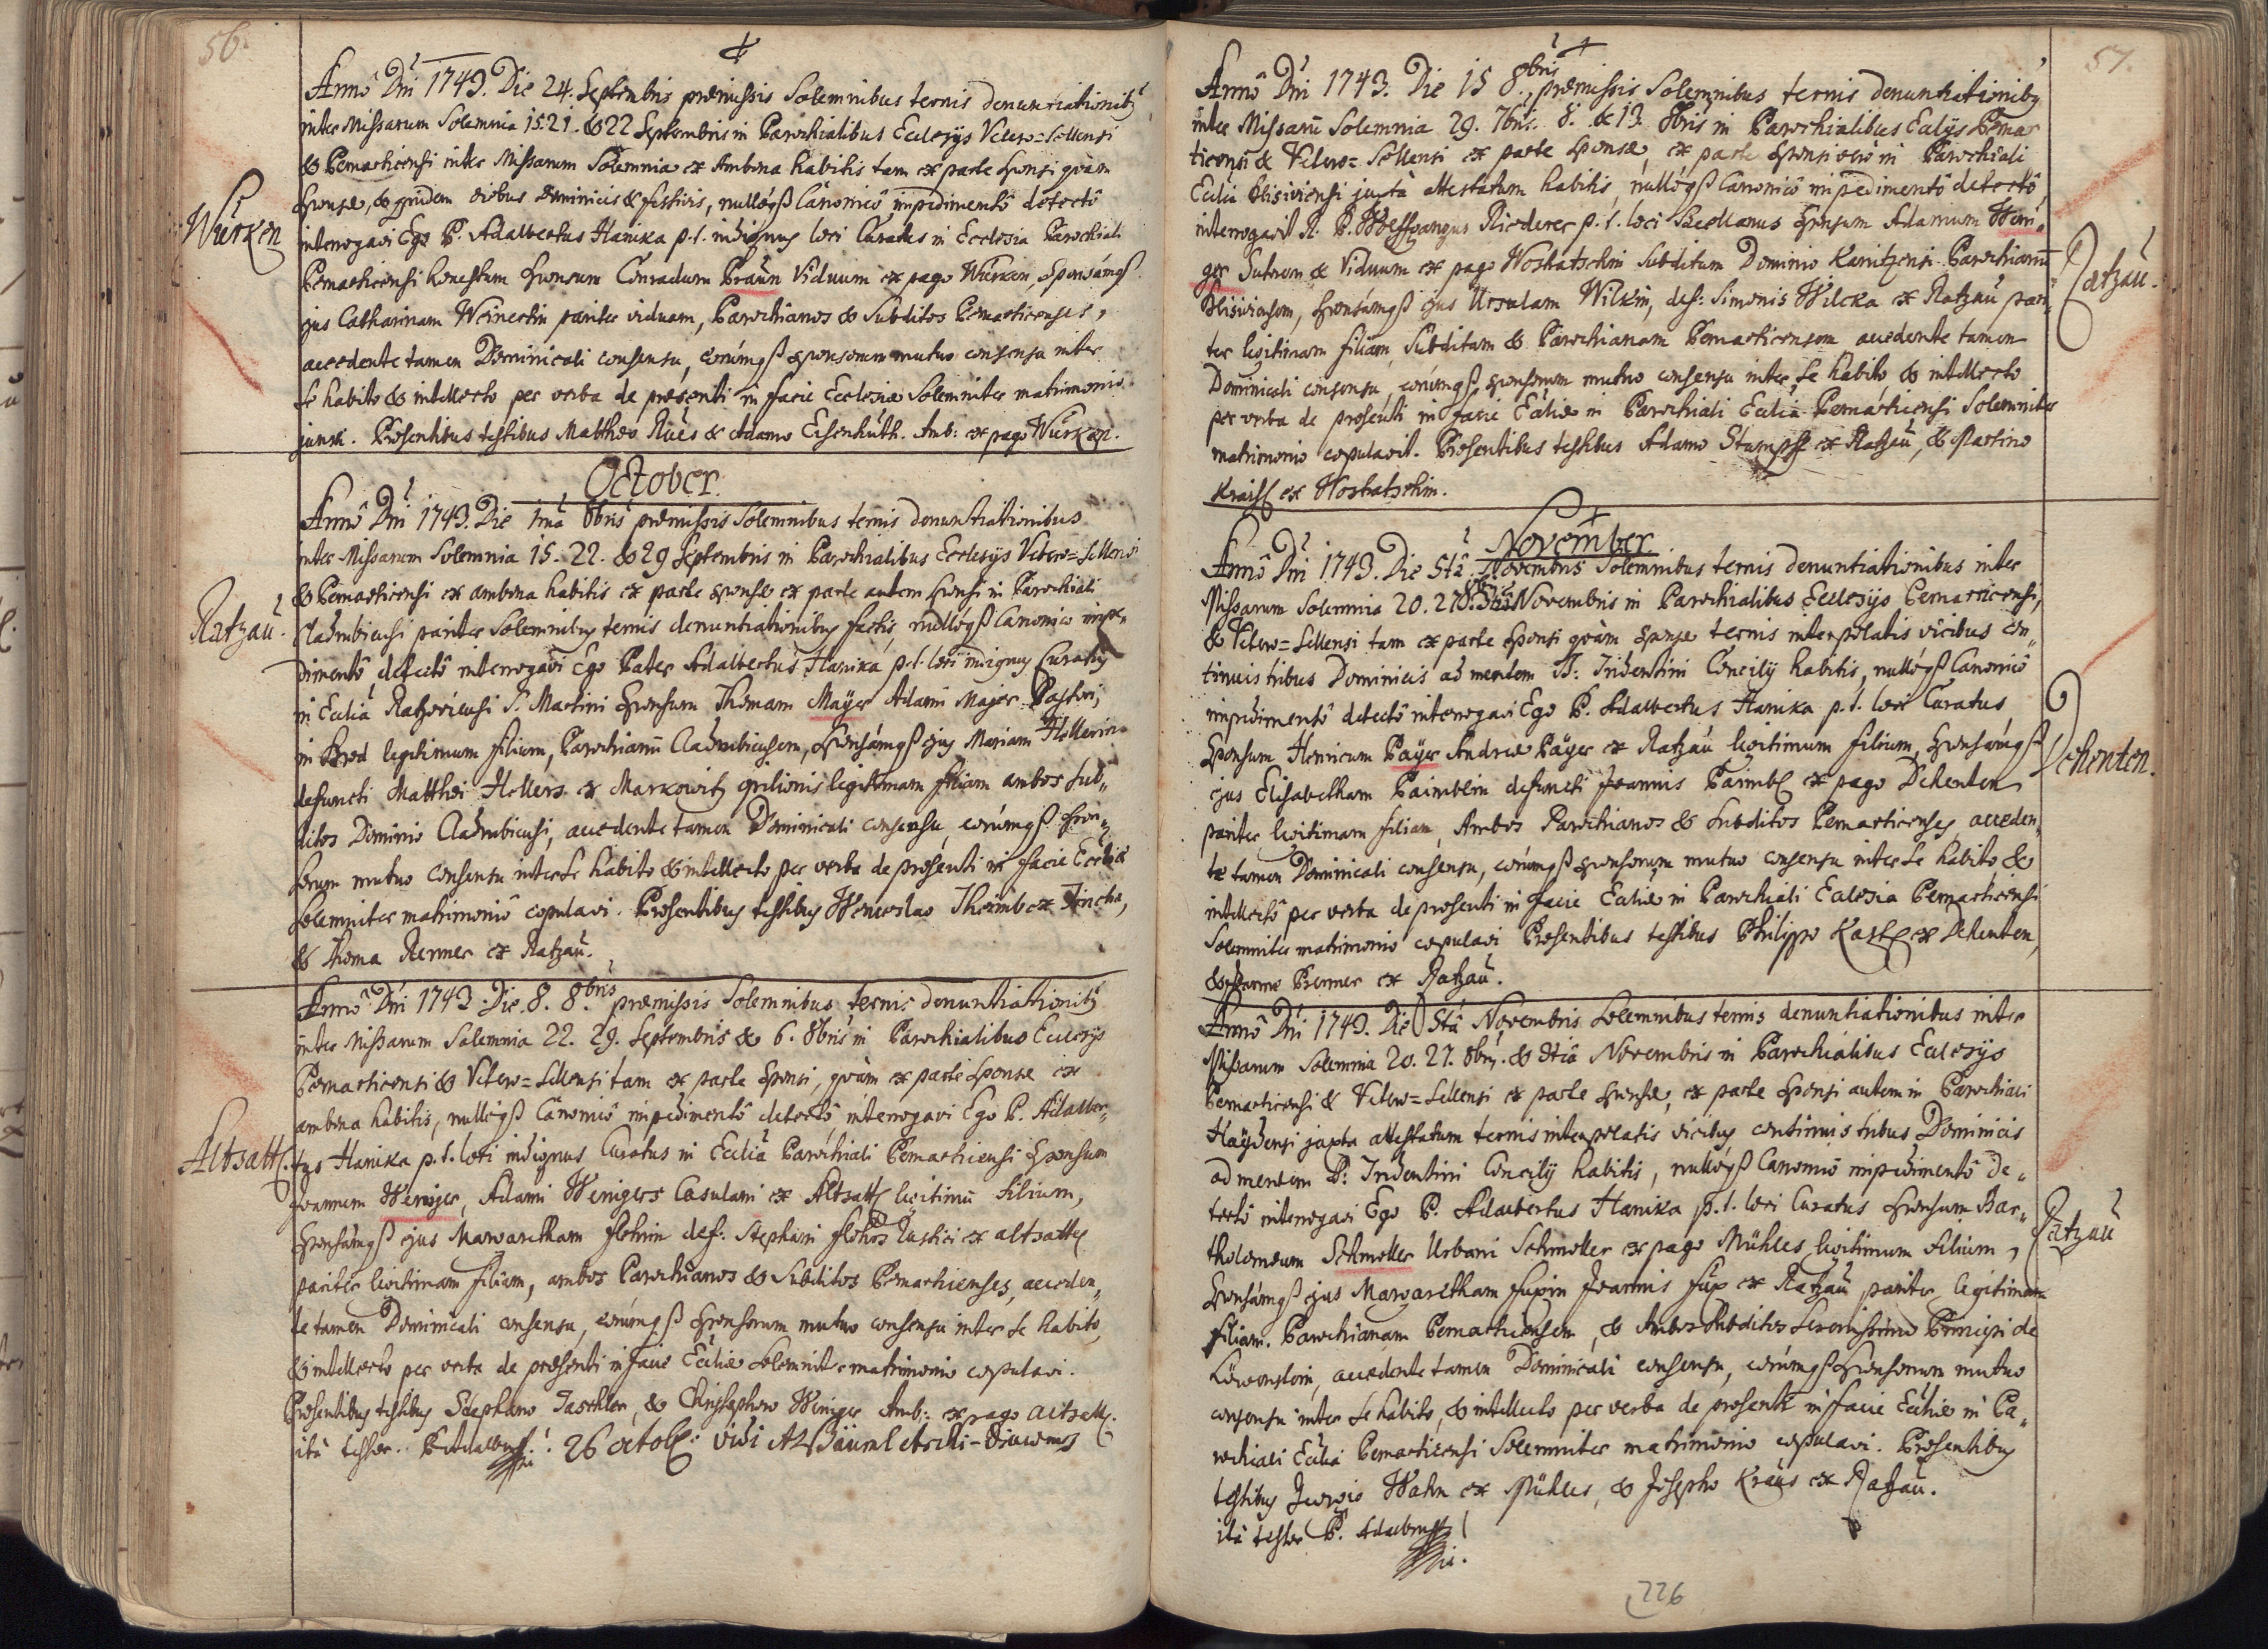 56.
Annô Dni 1743. Die 24. Septembris præmissis Solemnibus ternis denuntiationib9
inter Missarum Solemnia 15. 21. & 22 Septembris in Parochialibus Ecclesÿs Vetero=Sellensi
& Pernarticensi inter Missarum Solemnia ex Ambona habitis tam ex parte sponsi quàm
sponsæ, & quidem diebus Dominicis & festivis, nullóq3 Canonicô impedimentô detectô
Würken
interrogavi Ego P. Adalbertus Hanika p. t. indignus loci Curatus in Ecclesia Parochiali
Pernarticensi honestum sponsum Conradum Braun Viduum ex pago Würken, sponsámq3
ejus Catharinam Weinertin pariter viduam, Parochianos & Subditos Pernarticenses,
accedente tamen Dominicali consensu, eorúmq3 sponsorum mutuo consensu inter
se habito & intellecto per verba de præsenti in facie Ecclesiæ Solemniter matrimonio
junxi. Præsentibus testibus Matthæo Rües & Adamo Eisenhüth. Amb: ex pago Würken.
October.
Annô Dni 1743. Die 1mâ 8bris præmissis Solemnibus ternis denuntiationibus
inter Missarum Solemnia 15. 22. & 29 Septembris in Parochialibus Ecclesÿs Vetero=Sellensi
& Pernarticensi ex ambona habitis ex parte sponsæ ex parte autem sponsi in Parochiali
Ratzau.
Cladrubicensi pariter Solemnibus ternis denuntiationibus factis nullóq3 Canonico impe„
dimentô detectô interrogavi Ego Pater Adalbertus Hanika p. t. loci indignus Curatus
in Eccliâ Ratzoviensi S. Martini sponsum Thomam Maÿer Adami Majer Pastori,
in Brod legitimum filium, Parochianū Cladrubicensem, sponsámq3 ejus Mariam Hollerin
defuncti Matthæi Hollers ex Markowitz opilionis legitimam filiam ambos sub„
ditos Dominio Cladrubicensi, accedente tamen Dominicali consensu, eorúmq3 spon„
sorum mutuo consensu inter se habito & intellecto per verba de præsenti in facie Ecclæ
solemniter matrimoniô copulavi. Præsentibus testibus Wenceslao Thoimb ex Tincha,
& Thoma Renner ex Ratzau.
Annô Dni 1743. Die 8. 8bris præmissis Solemnibus ternis denuntiationib9
inter Missarum Solemnia 22. 29. Septembris & 6. 8bris in Parochialibus Ecclesÿs
Pernarticensi & Vetero=Sellensi tam ex parte sponsi, quàm ex parte sponsæ ex
ambona habitis, nullóq3 Canonicô impedimentô detectô, interrogavi Ego P. Adalber„
Altsattl.
tus Hanika p. t. loci indignus Curatus in Eccliâ Parochiali Pernarticensi sponsum
Joannem Weniger, Adami Wenigers Casulari ex Altsattl legitimū filium,
sponsámq3 ejus Margaretham flohrin def: Stephani flohrs Rustici ex altsattl
pariter legitimam filiam, ambos Parochianos & Subditos Pernarticenses, acceden„
te tamen Dominicali consensu, eorúmq3 sponsorum mutuo consensu inter se habito,
& intellecto per verba de præsenti in facie Eccliæ solemniter matrimonio copulavi.
Præsentibus testibus Stephano Taschler, & Christophoro Weniger Amb: ex pago altsattl.
ità testor. P. Adalbert.
26 octob: vidi

57.
Annô Dni 1743. Die 15 8bris, præmissis Solemnibus ternis denuntiationib9
inter Missarū Solemnia 29. 7bris. 6. & 13. 8bris in Parochialibus Ecclÿs Pernar
ticensi & Vetero=Sellensi ex parte sponsæ, ex parte sponsi verò in Parochiali
Eccliâ Blisiviensi juxtà attestatum habitis, nullóq3 Canonicô impedimentô detectô,
interrogavit A. P. Wolffgangus Riederer p. t. loci Sacellanus sponsum Adamum Weni„
ger Sutorem & Viduum ex pago Woskatschin Subditum Dominio Kanitzensi Parochianū
Ratzau.
Blisiviensem, sponsámq3 ejus Ursulam Wilkin, def: Simonis Wilcka ex Ratzau pari„
ter legitimam filiam, Subditam & Parochianam Pernarticensem accedente tamen
Dominicali consensu, eorúmq3 sponsorum mutuo consensu inter se habito & intellecto
per verba de præsenti in facie Eccliæ in Parochiali Eccliâ Pernarticensi Solemniter
matrimonio copulavit. Præsentibus testibus Adamo Stumpff ex Ratzau, & Martino
Kraissl ex Woskatschin.
November.
Annô Dni 1743. Die 5tâ Novembris Solemnibus ternis denuntiationibus inter
Missarum Solemnia 20. 27. 8bris 3tiâ Novembris in Parochialibus Ecclesÿs Pernarticensi,
& Vetero=Sellensi tam ex parte sponsi quàm sponsæ ternis interpolatis vicibus con„
tinuis tribus Dominicis ad mentem S: Tridentini Concilÿ habitis, nullóq3 Canonicô
impedimentô detectô interrogavi Ego P. Adalbertus Hanika p. t. loci Curatus
sponsum Henricum Paÿer Andreæ Paÿer ex Ratzau legitimum filium, sponsámq3
Dehenten.
ejus Elisabetham Baimblin defuncti Joannis Baimbl ex pago Dehenten
pariter legitimam filiam, Ambos Parochianos & subditos Pernarticenses, acceden„
te tamen Dominicali consensu, eorúmq3 sponsorum mutuo consensu inter se habito, &
intellectô per verba de præsenti in facie Eccliæ in Parochiali Ecclesia Pernarticensi
Solemniter matrimonio copulavi Præsentibus testibus Philippo Kastl ex Dehenten,
& Renner ex Ratzau.
Annô Dni 1743. Die 5tâ Novembris Solemnibus ternis denuntiationibus inter
Missarum Solemnia 20. 27. 8bris. & 3tiâ Novembris in Parochialibus Ecclesÿs
Pernarticensi & Vetero=Sellensi ex parte sponsæ, ex parte sponsi autem in Parochiali
Haÿdensi juxta attestatum ternis interpolatis vicibus continuis tribus Dominicis
ad mentem S: Tridentini Concilÿ habitis, nullóq3 Canonicô impedimentô de„
tectô interrogavi Ego P. Adalbertus Hanika p. t. loci Curatus sponsum Bar„
Ratzau
tholomæum Schmoller Urbani Schmoller ex pago Mühles legitimum filium,
sponsámq3 ejus Margaretham fuxin Joannis fux ex Ratzau pariter legitimam
filiam. Parochianam Pernarticensem, & Ambos subditos Serenissimo Principi de
Löwenstein, accedente tamen Dominicali consensu, eorúmq3 sponsorum mutuo
consensu inter se habito, & intellecto per verba de præsenti in facie Eccliæ in Pa„
rochiali Eccliâ Pernarticensi Solemniter matrimonio copulavi. Præsentibus
testibus Georgio Wahn ex Mühles, & Josepho Kraus ex Ratzau.
ità testor P. Adalbert
226